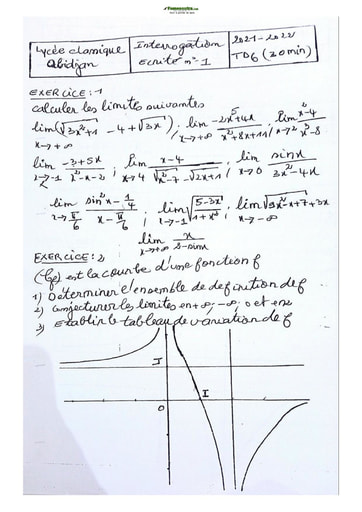 Fomesoutra.com
Lycée classique Abidjan
Interrogation écrite n°1
2021-2022
TD6 (20min)
EXERCICE: 1
calculer les limites suivantes
lim(√3x²+1 - 4+√3x) ; lim -2x⁵+4x / x²+8x+11 ; lim x²-4 / x³-8
x→+∞ x→+∞ x→2
lim -3+5x / x²-x-2 ; lim x-4 / √x²-7 - √2x+1 ; lim sinx / 3x²-4x
x→-1 x→4 x→0
lim sin²x - 1/4 / x - π/6 ; lim √5-3x³ / 1+x³ ; lim √9x²-x+7+3x
x→π/6 x→-1 x→-∞
lim x / 2-sinx
x→+∞
EXERCICE: 2
(Cf) est la courbe d'une fonction f
1) Déterminer l'ensemble de definition de f
2) conjecturer les limites en +∞; -∞; 0 et en 2
3) Etablir le tableau de variation de f
J
I
O